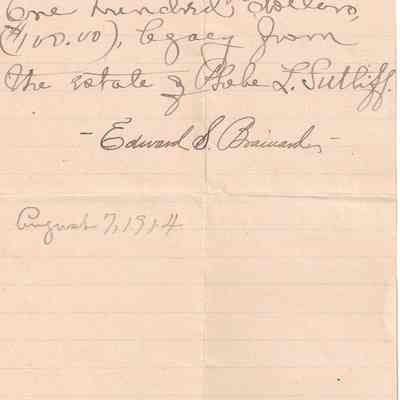 One hundred dollars,
($100.00), legacy from
the estate of Phebe L. Sutliff.
- Edward S. Brainard -
August 7, 1914